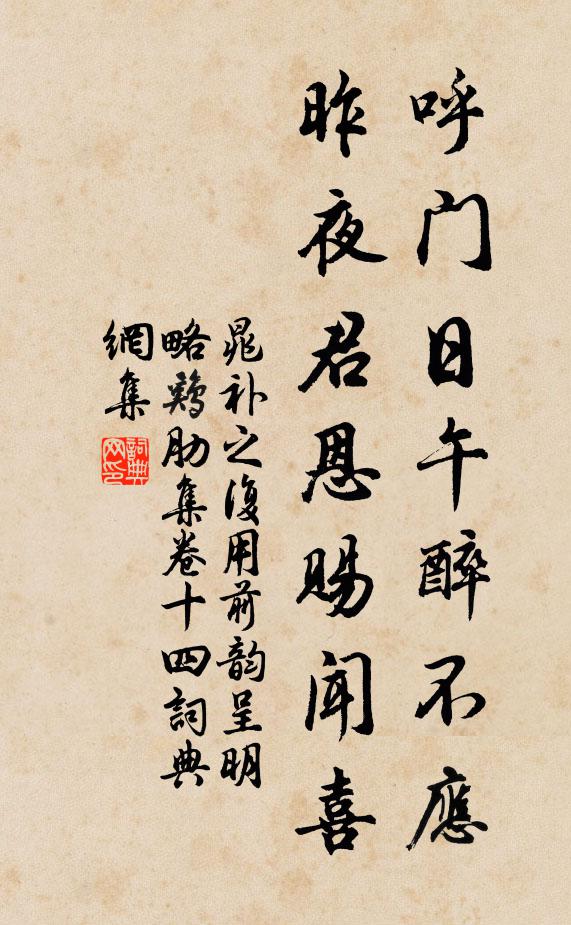 呼门日午醉不應
昨夜君恩賜闻喜
晁补之復用前韵呈明
略鷄肋集卷十四詞典
網集
詞典网印